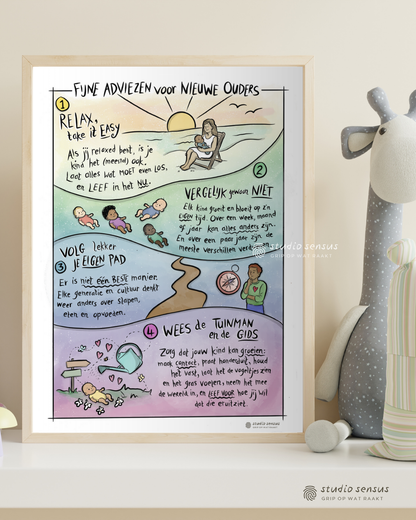 FIJNE ADVIEZEN voor NIEUWE OUDERS
1
RELAX,
take it EASY
Als jij relaxed bent, is je
kind het (meestal) ook.
Laat alles wat MOET even LOS,
en LEEF in het NU.
2
VERGELIJK gewoon NIET
Elk kind groeit en bloeit op z'n
EIGEN tijd. Over een week, maand
of jaar kan alles anders zijn.
En over een paar jaar zijn de
meeste verschillen
studio sensus
GRIP OP WAT RAAKT
VOLG lekker
3 JE EIGEN PAD
Er is niet één BESTE manier.
Elke generatie en cultuur denkt
weer anders over slapen,
eten en opvoeden.
4 WEES de TUINMAN
en de GIDS
Zorg dat jouw kind kan groeien:
maak contact, praat honderduit, houd
het vast, laat het de vogeltjes zien
en het gras voelen, neem het mee
de wereld in, en LEEF VOOR hoe jij wil
dat die eruitziet.
studio sensus
studio sensus
GRIP OP WAT RAAKT